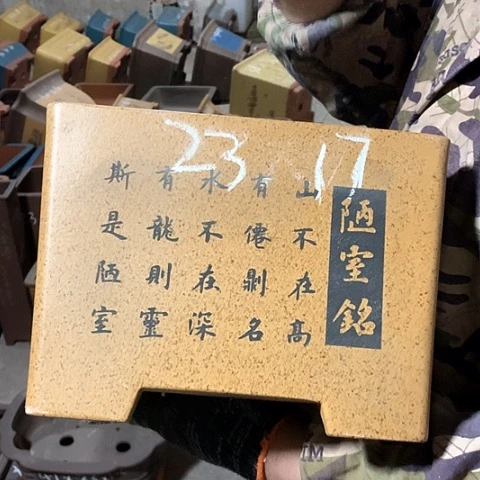 23 17
陋室銘
山不在高
有僊剆名
水不在深
有龍則靈
斯是陋室